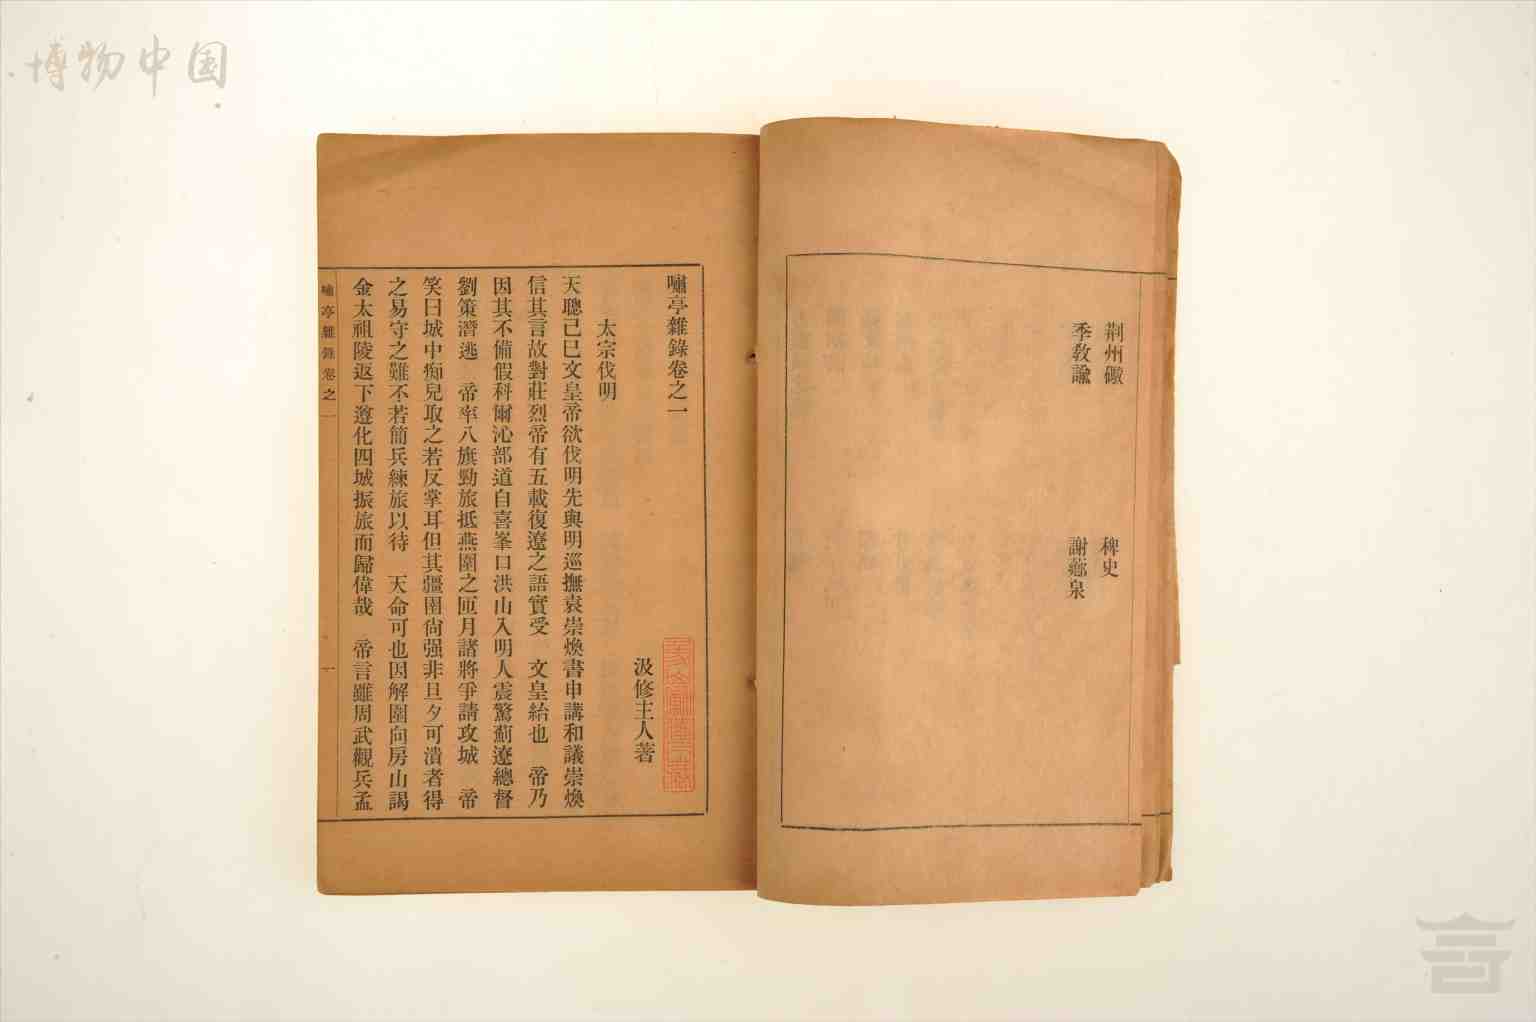 博物中国
荆州礮 稗史
季教諭 謝薌泉
嘯亭雜錄卷之一
汲修主人著
太宗伐明
天聰己巳文皇帝欲伐明先與明巡撫袁崇煥書申講和議崇煥
信其言故對莊烈帝有五載復遼之語實受 文皇紿也 帝乃
因其不備假科爾沁部道自喜峯口洪山入明人震驚薊遼總督
劉策潛逃 帝率八旗勁旅抵燕圍之匝月諸將爭請攻城 帝
笑曰城中痴兒取之若反掌耳但其疆圉尙强非旦夕可潰者得
之易守之難不若簡兵練旅以待 天命可也因解圍向房山謁
金太祖陵返下遵化四城振旅而歸偉哉 帝言雖周武觀兵孟
嘯亭雜錄卷之一
一